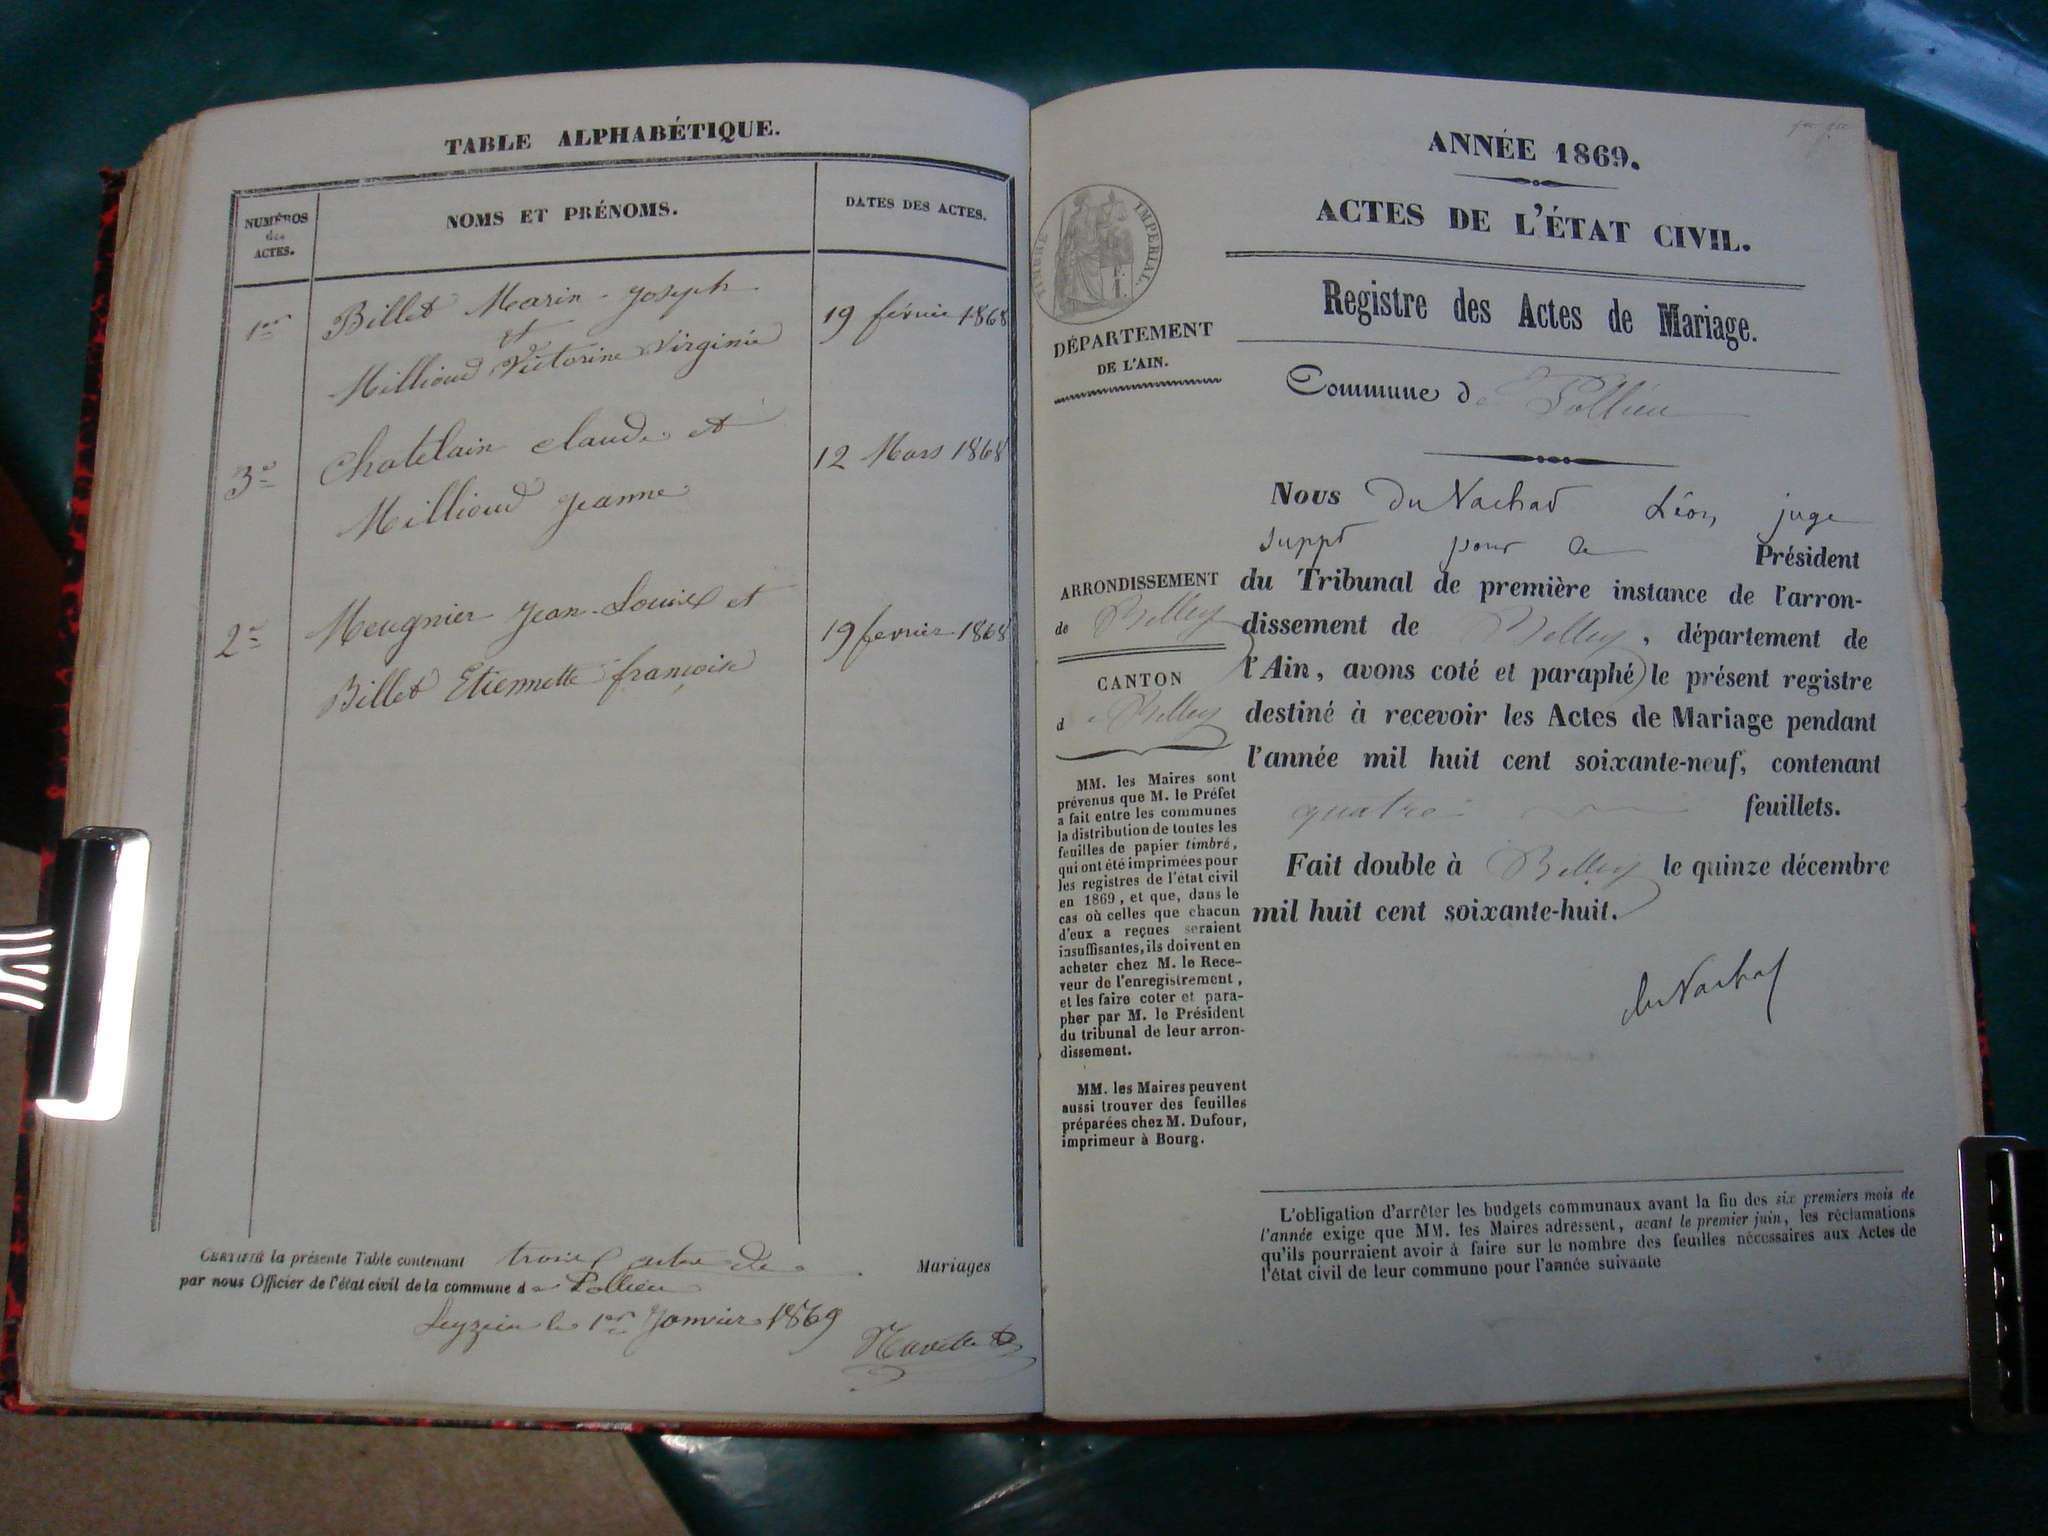 TABLE ALPHABÉTIQUE.
NUMÉROS
des
ACTES.
NOMS ET PRÉNOMS.
DATES DES ACTES.
1er
Billet Marin-Joseph
et
Millioud Victorine Virginie
19 février 1868
3e
Chatelain claude et
Millioud Jeanne
12 Mars 1868
2e
Meugnier Jean-Louis et
Billet Etiennette françoise
19 fevrier 1868
CERTIFIÉ la présente Table contenant trois actes de Mariages
par nous Officier de l'état civil de la commune de Pollieu
le 1er Janvier 1869
ANNÉE 1869.
ACTES DE L'ÉTAT CIVIL.
TIMBRE IMPÉRIAL.
Registre des Actes de Mariage.
DÉPARTEMENT
DE L'AIN.
Commune de Pollieu
Nous du Nachat Léon, juge
suppt pour le Président
du Tribunal de première instance de l'arron-
dissement de Belley, département de
l'Ain, avons coté et paraphé le présent registre
destiné à recevoir les Actes de Mariage pendant
l'année mil huit cent soixante-neuf, contenant
quatre feuillets.
Fait double à Belley le quinze décembre
mil huit cent soixante-huit.
du Nachat
ARRONDISSEMENT
de Belley
CANTON
de Belley
MM. les Maires sont
prévenus que M. le Préfet
a fait entre les communes
la distribution de toutes les
feuilles de papier timbré,
qui ont été imprimées pour
les registres de l'état civil
en 1869, et que, dans le
cas où celles que chacun
d'eux a reçues seraient
insuffisantes, ils doivent en
acheter chez M. le Rece-
veur de l'enregistrement,
et les faire coter et para-
pher par M. le Président
du tribunal de leur arron-
dissement.
MM. les Maires peuvent
aussi trouver des feuilles
préparées chez M. Dufour,
imprimeur à Bourg.
L'obligation d'arrêter les budgets communaux avant la fin des six premiers mois de
l'année exige que MM. les Maires adressent, avant le premier juin, les réclamations
qu'ils pourraient avoir à faire sur le nombre des feuilles nécessaires aux Actes de
l'état civil de leur commune pour l'année suivante